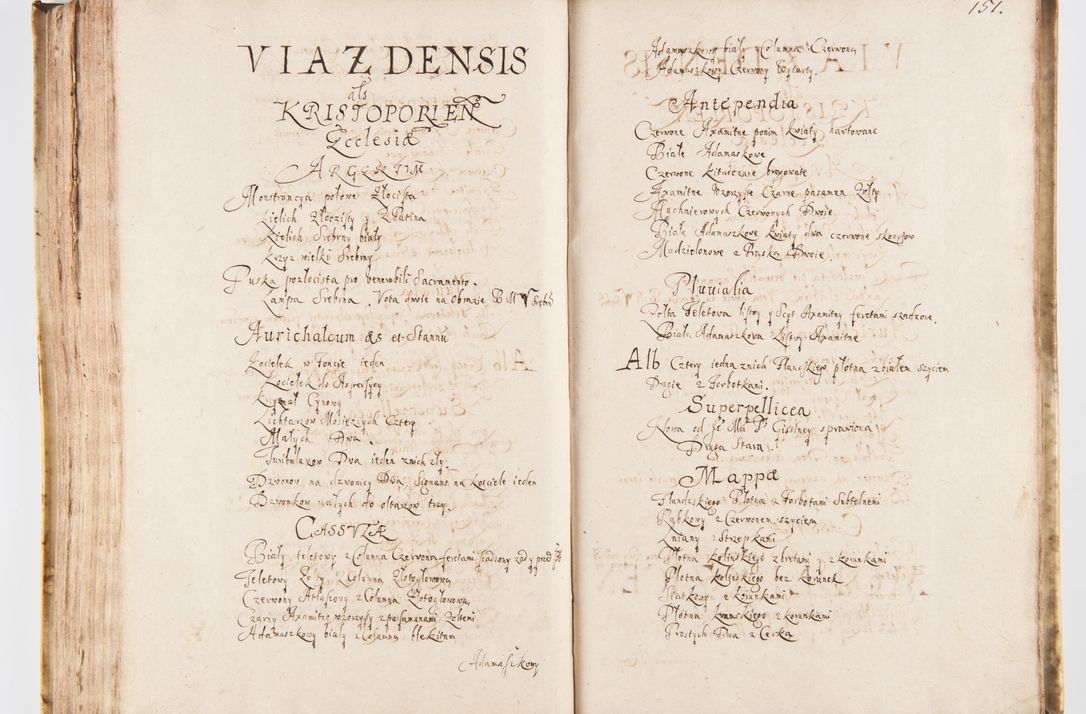 VIAZDENSIS
als
KRISTOPORIEN
Ecclesiæ
ARGENTUM
Monstrancya połowe złocista
Kielich złoczisty z Patina
Kielich Srebrny biały
Krzyz wielki Srebrny
Puska pozłocista pro venerabili Sacramento.
Lampa Srebrna. Vota dwoie na obrazie B M V
Aurichalcum et Stannū
Kociełek w Foncie ieden
Kociełek do Aspersyey
Krysztal Cynowy
Lichtarzow Mosiężnych Cztery
Małych Dwa.
Turibularzow Dwa ieden znich zły.
Dzwonow na dzwonicy Dwa, Signano na Kosciele ieden
Dzwonkow małych do oltarzow trzy.
CASSVLÆ
Biały teletowy z Columna Czerwona feretami sadzony zady przed
Teletowy Zołty z Columna Złotogłowowa
Czerwony Atłasowy z Columna Złotogłowowa
Czarny Axamitny wzorzysty z pasamanami Zołtemi
Adamaszkowy biały z Columna blekitna
Adamaszkowy
151.
Adamaszkowy biały z Columna Czerwona
Adamaszkowy Czerwony Wytarty.
Antependia
Czerwone Axamitne ponim kwiaty hartowane
Białe Adamaskowe
Czerwone Kitayczane brezowate
Axamitne Wzorzyste Czarne pasaman Zołty
Muchaierowych Czerwonych Dwoie
Białe Adamaszkowe kwiaty dwa czerwone
Madzielonowe z Dwoie
Pluvialia
Zołta Teletowa listwy y Scyt Axamitny feretami szadzone.
Biała Adamaszkowa Listwy Axamitne
Alb Cztery iedna znich Flanckiego płotna z białem szyciem
Drugie z Forbotkami.
Superpellicea
Nowa od Je Mci P sprawiona
Druga Stara.
Mappæ
Flandzskiego Płotna z Forbotami Subtelnemi
Rąbkowy z Czerwonem szyciem
Lniany z Strzepkami
Płotna Kolinskiego z bretami y z koronkami
Płotna kolinskiego bez koronek
z koronkami
Płotna kramskiego z koronkami
Prostych Dwa z Cerka